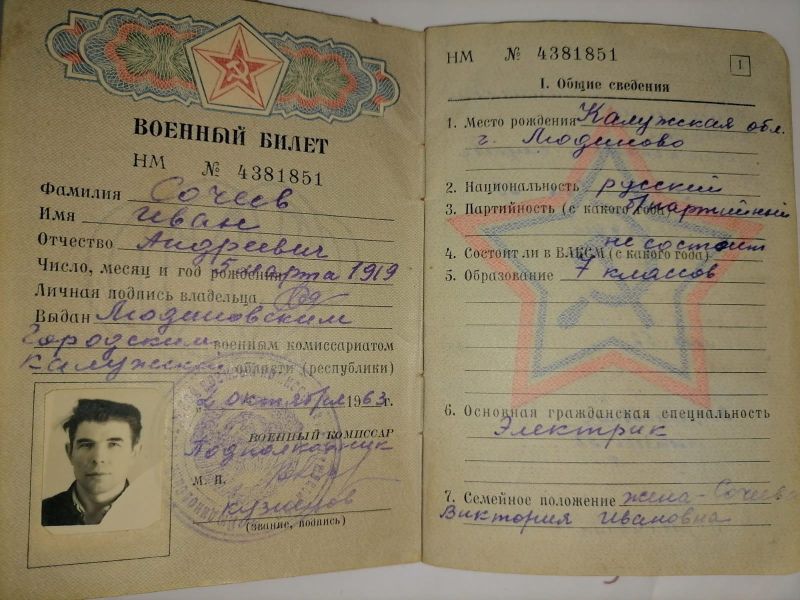 ВОЕННЫЙ БИЛЕТ
НМ № 4381851
Фамилия Сочеев
Имя Иван
Отчество Андреевич
Число, месяц и год рождения 15 марта 1919
Личная подпись владельца
Выдан Людиновским
Городским военным комиссариатом
Калужской области (республики)
2 октября 1963 г.
ВОЕННЫЙ КОМИССАР
Подполковник
М. П.
Кузнецов
(звание, подпись)
НМ № 4381851
1
I. Общие сведения
1. Место рождения Калужская обл.
г. Людиново
2. Национальность русский
3. Партийность (с какого года) б/партийный
не состоит
4. Состоит ли в ВЛКСМ (с какого года)
5. Образование 7 классов
6. Основная гражданская специальность
Электрик
7. Семейное положение жена - Сочеева
Виктория Ивановна